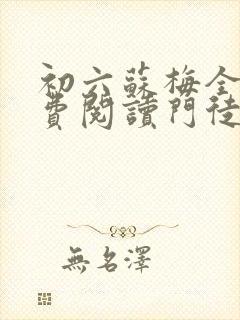 初六蘇梅全
費閱讀門徒
無名澤